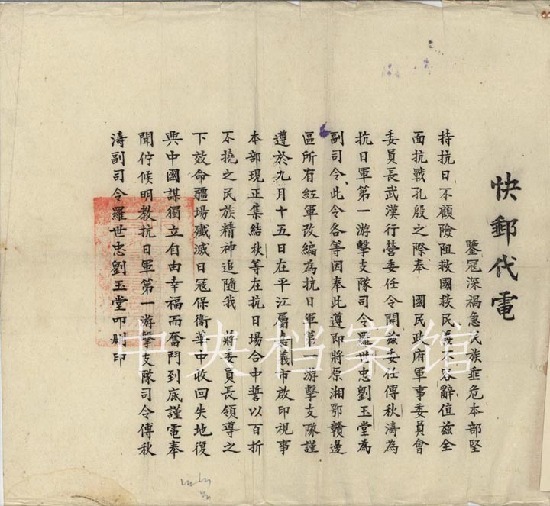 快郵代電
鑒寇深禍急民族垂危本部堅
持抗日不顧險阻救國救民 辭值兹全
面抗戰孔殷之際奉 國民政府軍事委員會
委員長武漢行營委任令開兹委任傅秋濤為
抗日軍第一游擊支隊司令羅世忠劉玉堂為
副司令此令各等因奉此遵即將原湘鄂贛邊
區所有紅軍改編為抗日軍第一游擊支隊謹
遵於九月十五日在平江屬嘉義市啟印視事
本部現正集結 等在抗日場合中誓以百折
不撓之民族精神追隨我 蔣委員長領導之
下效命疆場殲滅日寇保衛華中收回失地復
興中國謀獨立自由幸福而奮鬥到底謹電奉
聞佇候明教抗日軍第一游擊支隊司令傅秋
濤副司令羅世忠劉玉堂叩 印
中央档案馆